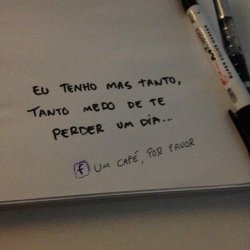 EU TENHO MAS TANTO,
TANTO MEDO DE TE
PERDER UM DIA...
f UM CAFÉ, POR FAVOR